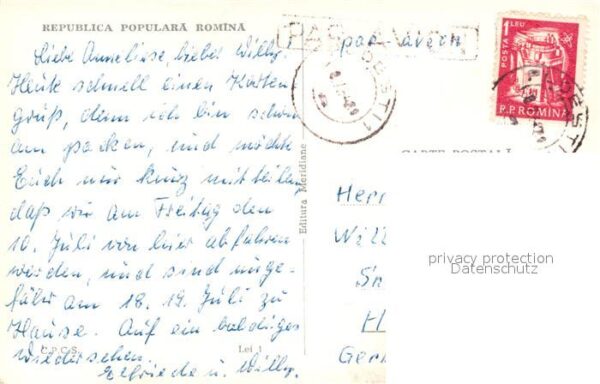 REPUBLICA POPULARĂ ROMÎNĂ
PAR AVION
par avion
1 LEU
POSTA
P.P. ROMINA
Liebe Anneliese, lieber Willy.
Heute schnell einen Karten
gruß, denn ich bin schon
am packen, und möchte
Euch nur kurz mitteilen,
daß wir am Freitag den
10. Juli von hier abfahren
werden, und sind unge-
fähr am 18. 19. Juli zu
Hause. Auf ein baldiges
Wiedersehen.
Elfriede u. Willy.
C.P.C.S.
Lei 1
Editura Meridiane
CARTE POSTALĂ
Herr
Will
H
Ger
privacy protection
Datenschutz